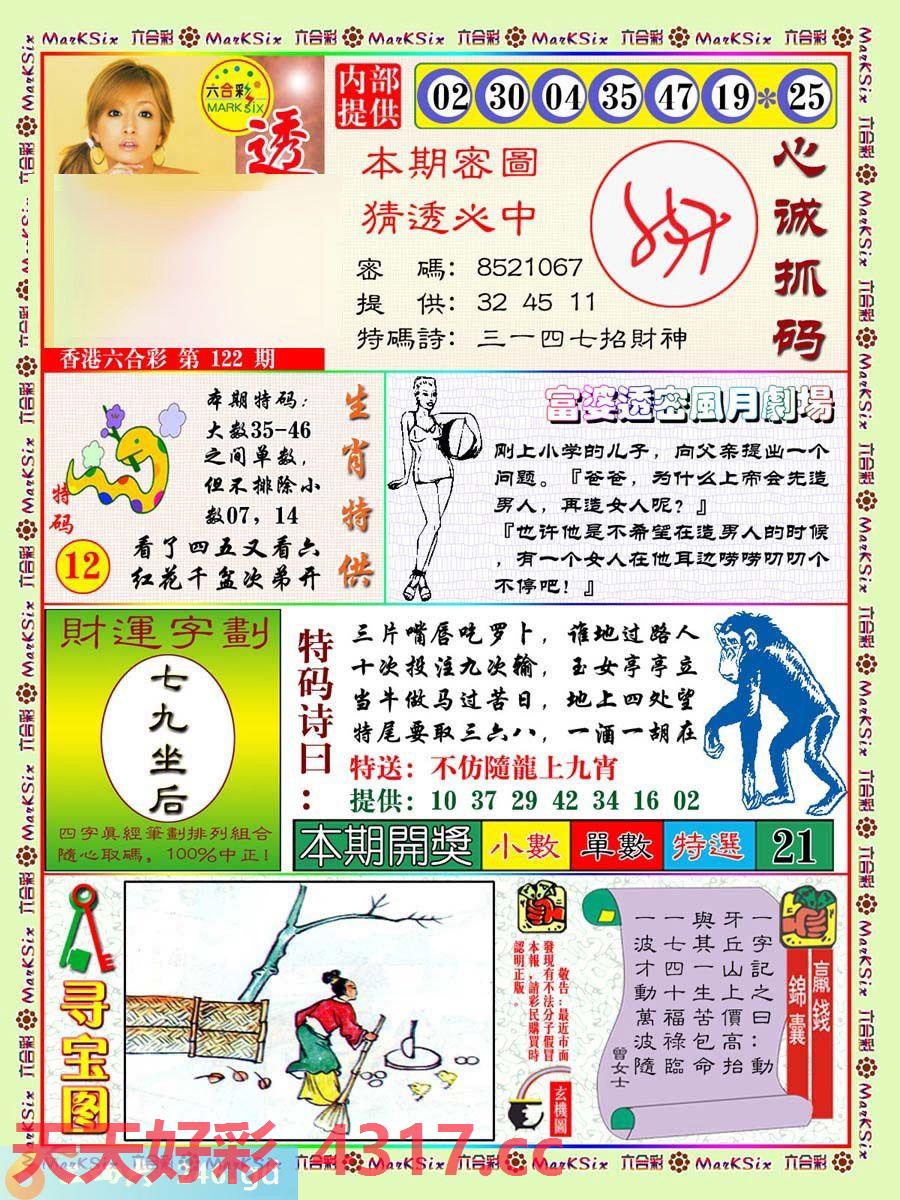 MarKSix 六合彩 MarKSix 六合彩 MarKSix 六合彩 MarKSix 六合彩 MarKSix 六合彩
六合彩
MARK SIX
透
内部
提供
02 30 04 35 47 19 * 25
本期密圖
猜透必中
密 碼: 8521067
提 供: 32 45 11
特碼詩: 三一四七招財神
心诚抓码
香港六合彩 第 122 期
本期特码:
大数35-46
之间单数,
但不排除小
数07, 14
看了四五又看六
红花千盆次第开
特码
12
生肖特供
富婆透密風月劇場
刚上小学的儿子, 向父亲提出一个
问题。『爸爸, 为什么上帝会先造
男人, 再造女人呢? 』
『也许他是不希望在造男人的时候
, 有一个女人在他耳边唠唠叨叨个
不停吧! 』
財運字劃
七九坐后
四字真經筆劃排列組合
隨心取碼, 100%中正!
特码诗曰:
三片嘴唇吃罗卜, 谁地过路人
十次投注九次输, 玉女亭亭立
当牛做马过苦日, 地上四处望
特尾要取三六八, 一酒一胡在
特送: 不仿隨龍上九宵
提供: 10 37 29 42 34 16 02
本期開獎 小數 單數 特選 21
寻宝图
敬告:最近市面
發現有不法分子假冒
本報,請彩民購買時
認明正版。
玄機圖
贏錢
錦囊
一字記之曰:動
牙丘山上價高抬
與其一生苦包命
一七四十福祿臨
一波才動萬波隨
曾女士
天天好彩 4317.cc
MarKSix 六合彩 MarKSix 六合彩 MarKSix 六合彩